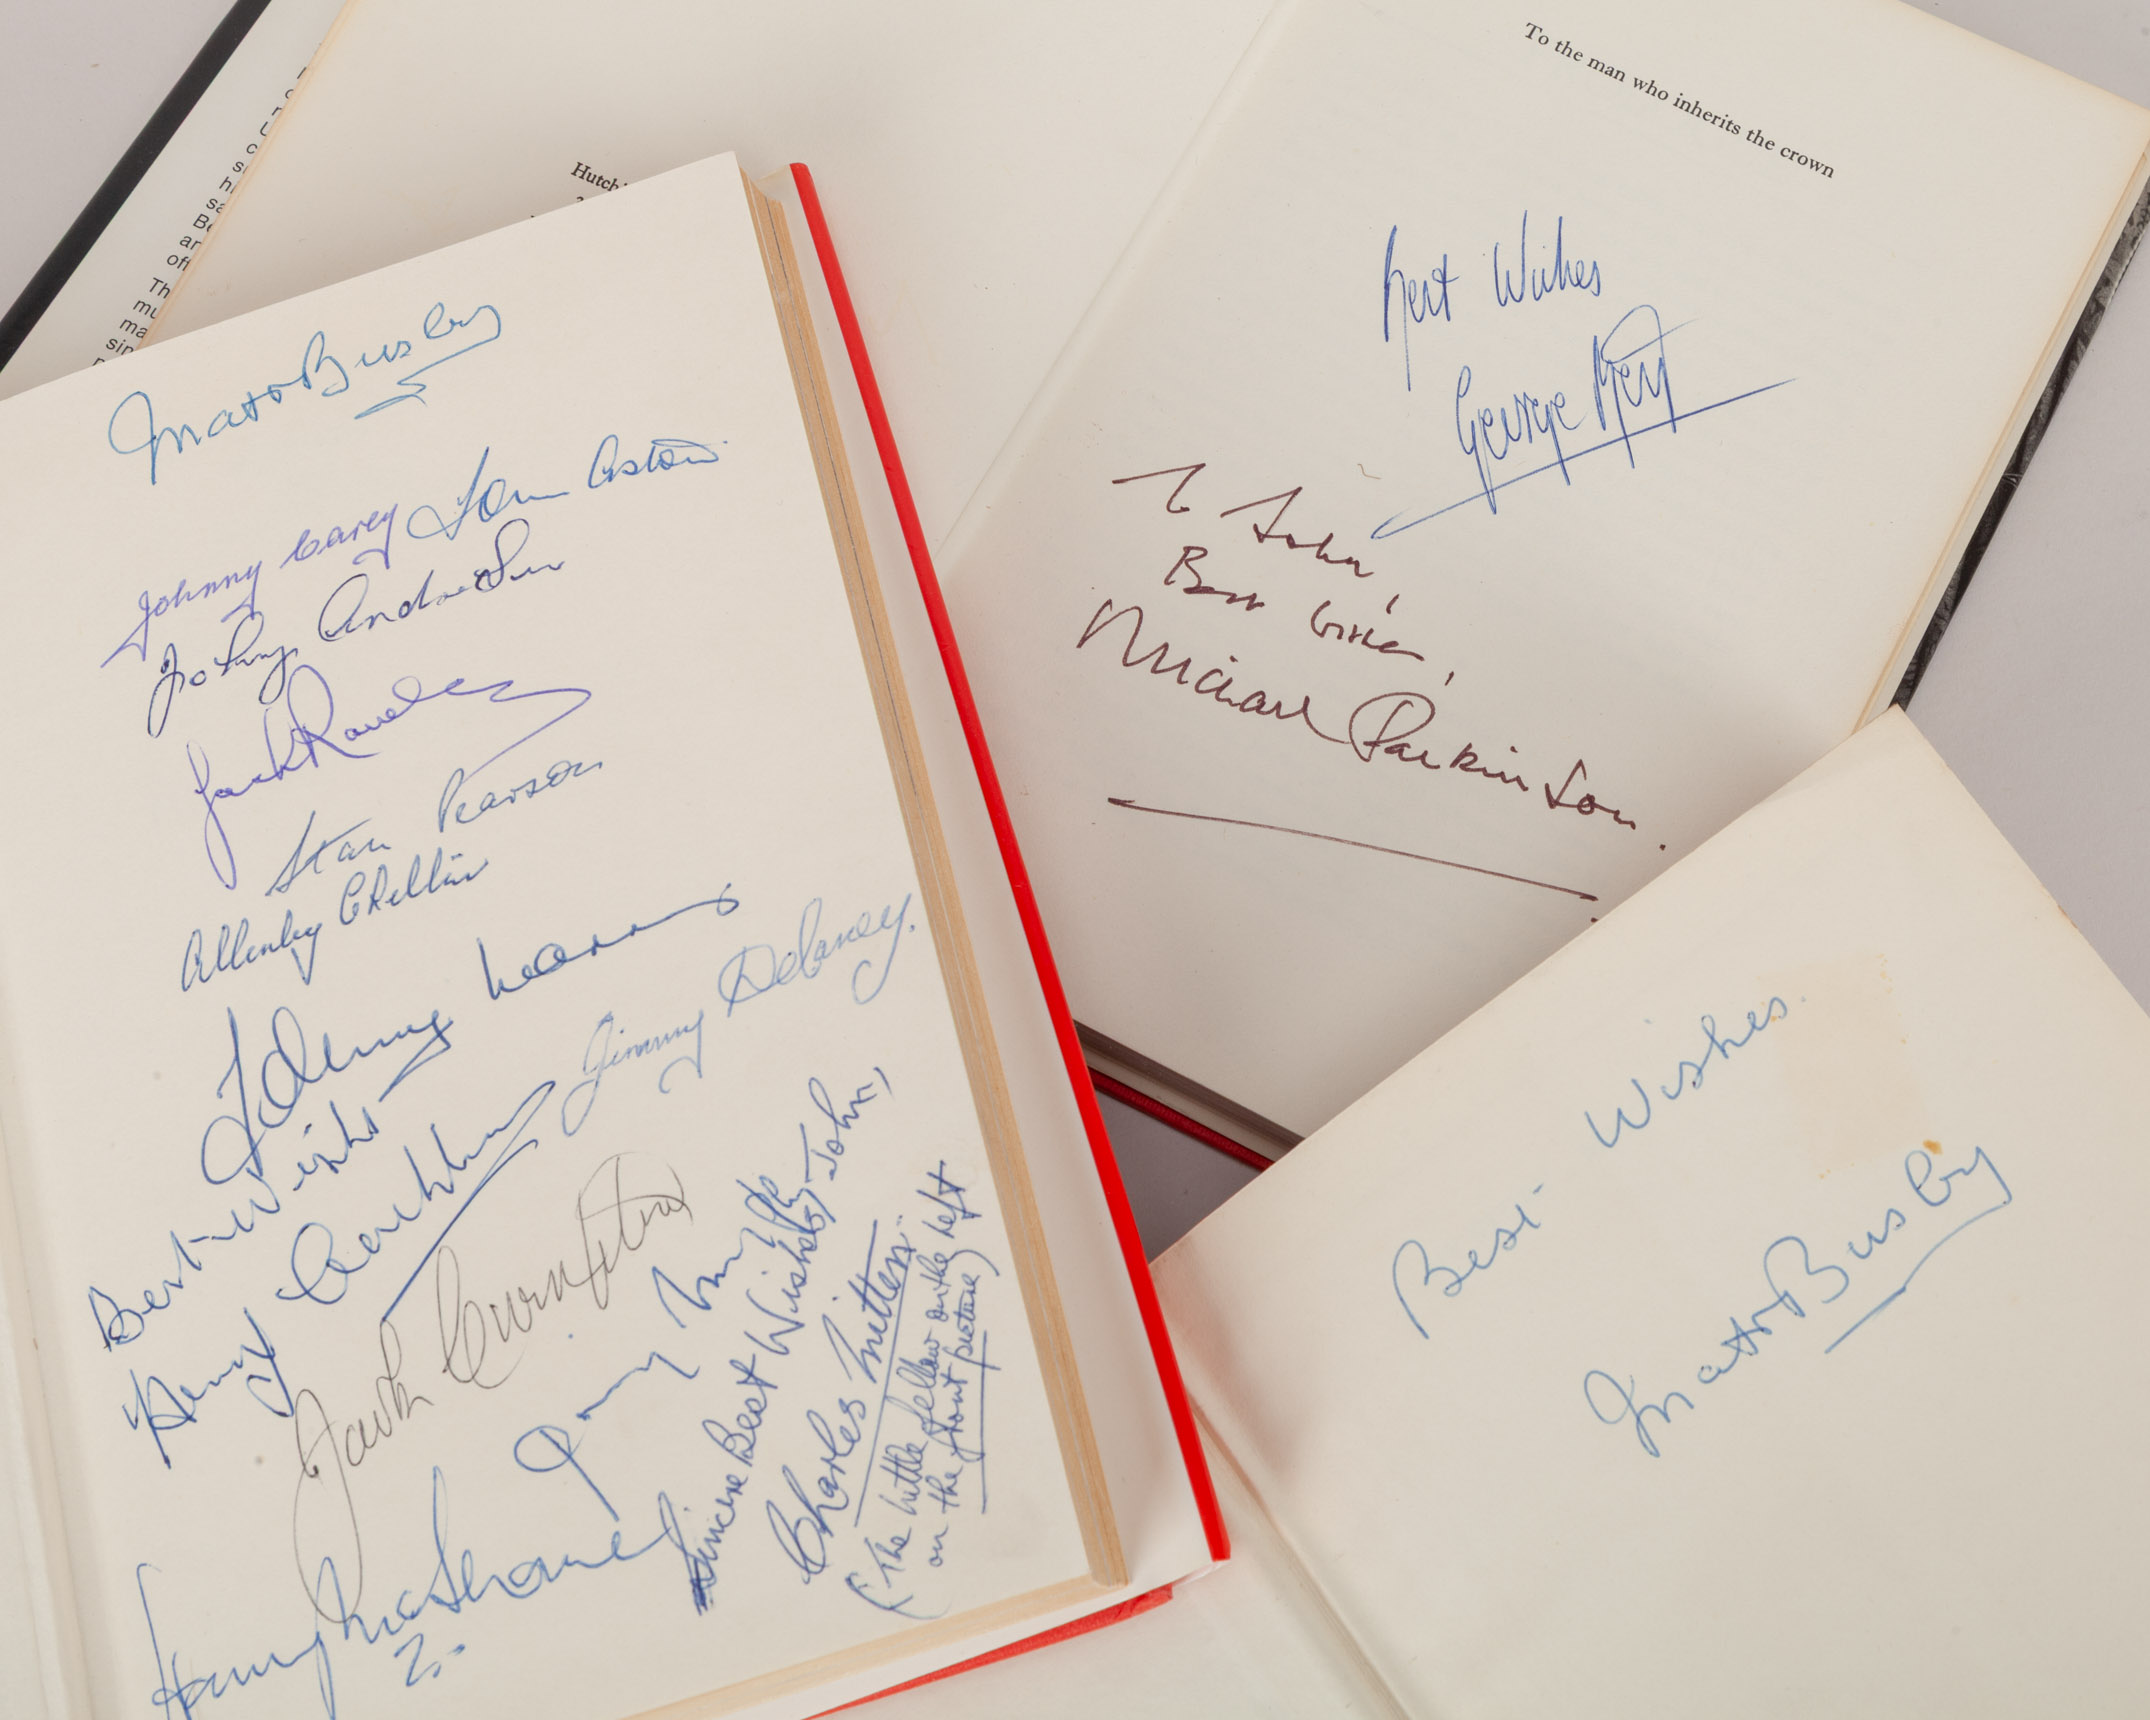 Matt Busby
Johnny Carey Tom Aston
Johnny Anderson
Jack Rowley
Stan Pearson
Allenby Chilton
Best Wishes
Henry Cockburn
Jimmy Delaney.
Jack Crompton
Sincere Best Wishes, John,
Charles Mitten
(The little fellow on the left
on the front picture)
Harry McShane
Hutch
Th
mu
ma
sin
off
To the man who inherits the crown
Best Wishes
George Best
To John,
Best Wishes,
Michael Parkinson.
Best Wishes.
Matt Busby